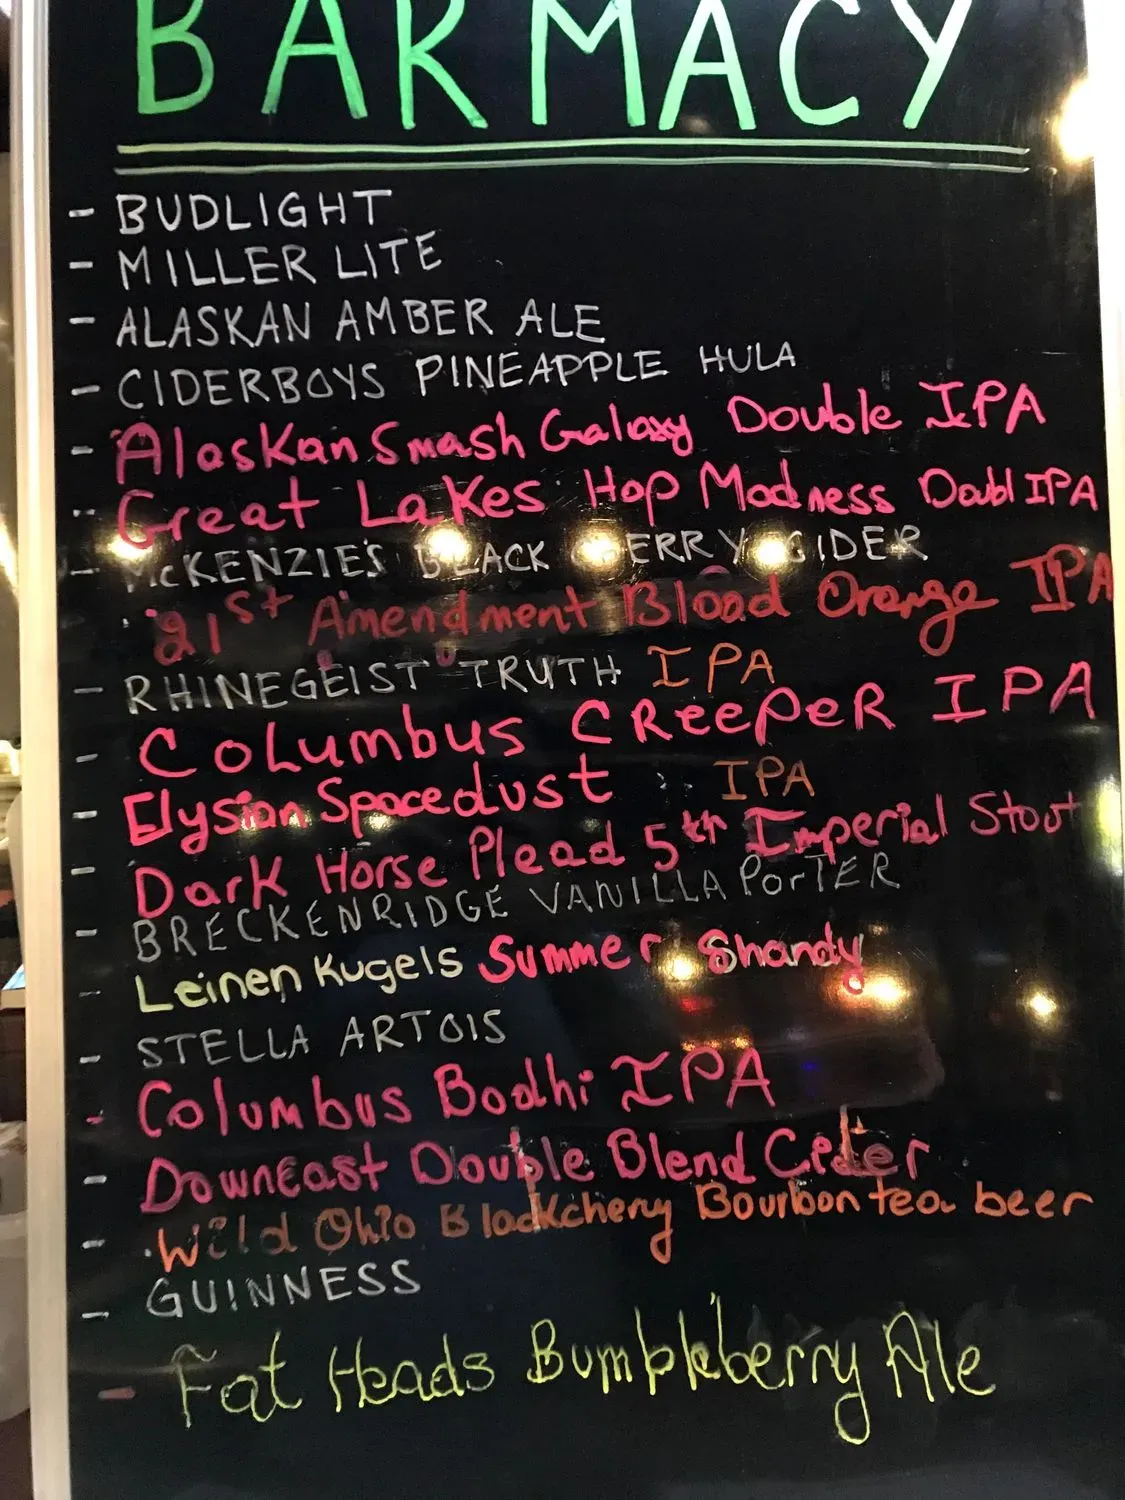 BARMACY
- BUDLIGHT
- MILLER LITE
- ALASKAN AMBER ALE
- CIDERBOYS PINEAPPLE HULA
- Alaskan Smash Galaxy Double IPA
- Great Lakes Hop Madness Doubl IPA
- McKENZIE'S BLACK CHERRY CIDER
- 21st Amendment Blood Orange IPA
- RHINEGEIST TRUTH IPA
- Columbus Creeper IPA
- Elysian Spacedust IPA
- Dark Horse Plead 5th Imperial Stout
- BRECKENRIDGE VANILLA PORTER
- Leinen Kugels Summer Shandy
- STELLA ARTOIS
- Columbus Bodhi IPA
- Downeast Double Blend Cider
- Wild Ohio Blackchery Bourbon tea beer
- GUINNESS
- Fat Heads Bumbleberry Ale